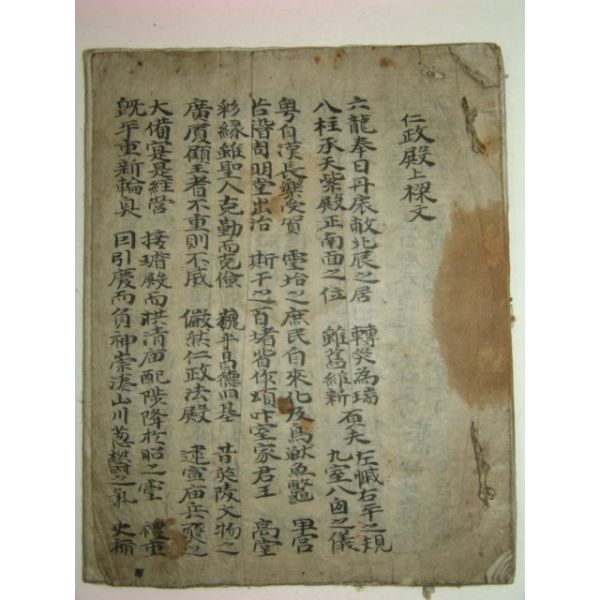 仁政殿上樑文
六龍奉日丹扆敞北辰之居 轉災為瑞 左墄右平之規
八柱承天紫殿正南面之位 雖舊維新 頁夫 九室八囱之儀
粤自漢長樂受賀 靈坮之庶民自來化及鳥獣魚鼈 卑宮
占湝周明堂出治 斯干之百堵皆作頌叶室家君王 高堂
彩縁雖聖人克勤而克儉 巍乎昌德旧基 昔英陵文物之
廣厦顧王者不重則不威 儼然仁政法殿 逮宣庙兵燹之
大備寔是經營 接璿殿而拱清庙配陟降於昭之靈 禮重
旣乎重新輪奐 回引慶而負神崇湊山川葱欝之氣 史稱